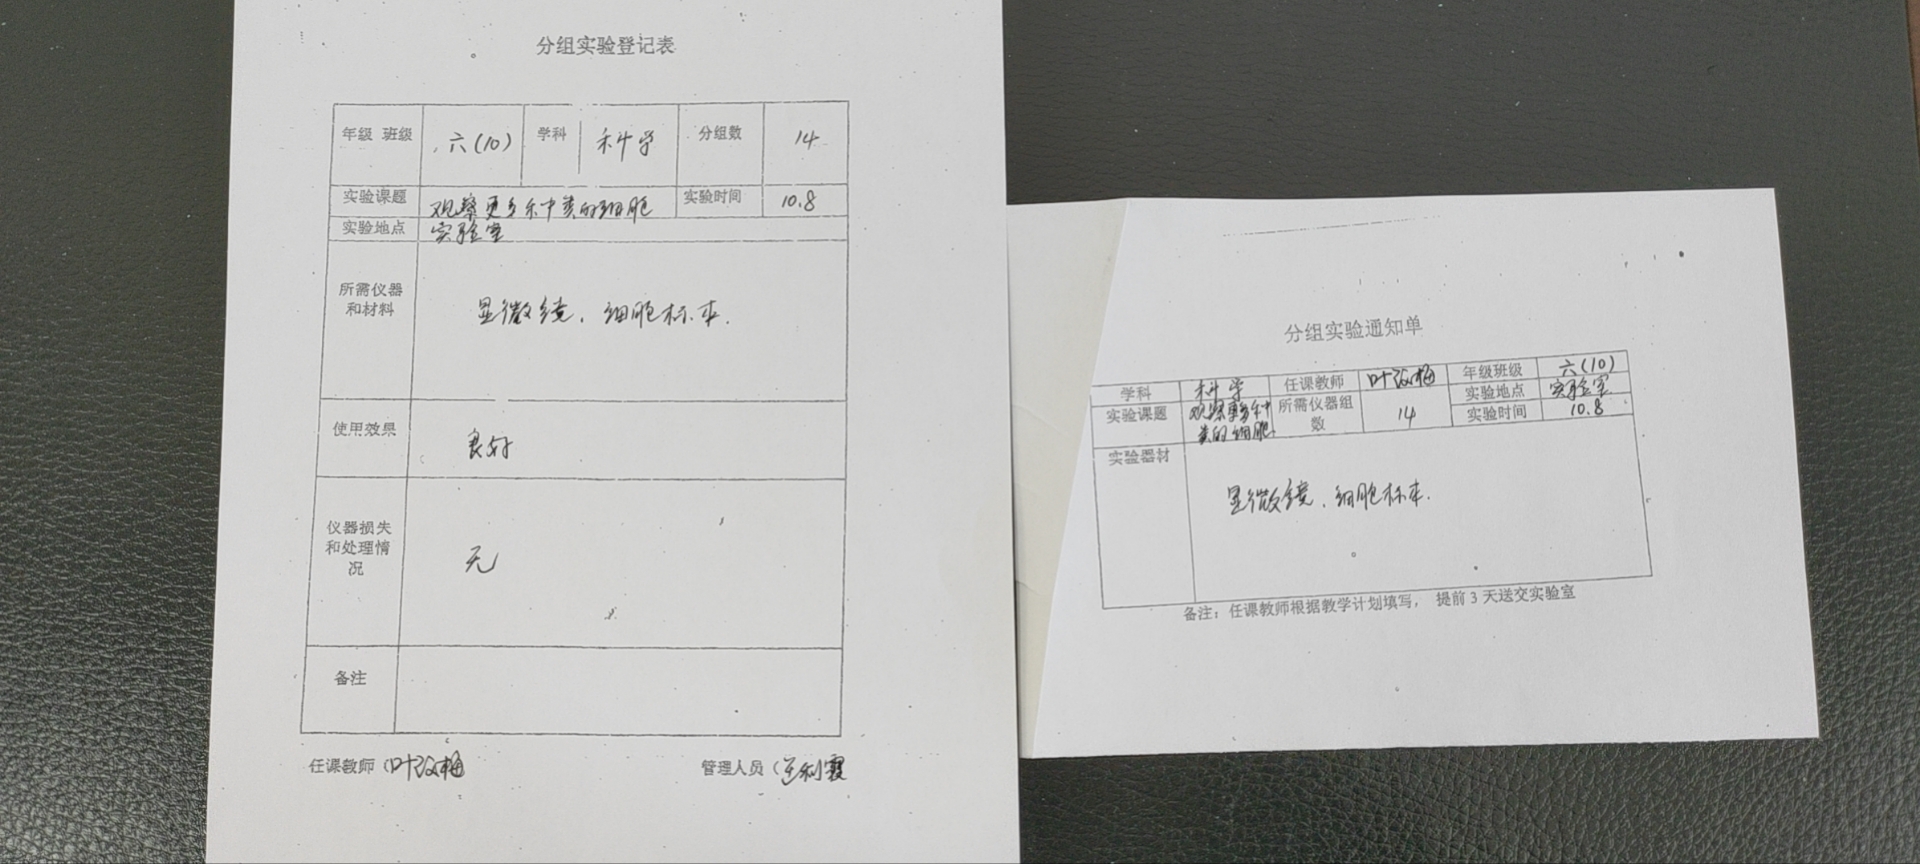 分组实验登记表
年级 班级 六(10) 学科 科学 分组数 14
实验课题 观察更多种类的细胞 实验时间 10.8
实验地点 实验室
所需仪器
和材料
显微镜、细胞标本.
使用效果 良好
仪器损失
和处理情
况
无
备注
任课教师(叶
管理人员(
分组实验通知单
学科 科学 任课教师 叶 年级班级 六(10)
实验地点 实验室
实验课题 观察更多种 所需仪器组 14 实验时间 10.8
类的细胞 数
实验器材
显微镜、细胞标本.
备注:任课教师根据教学计划填写, 提前3天送交实验室